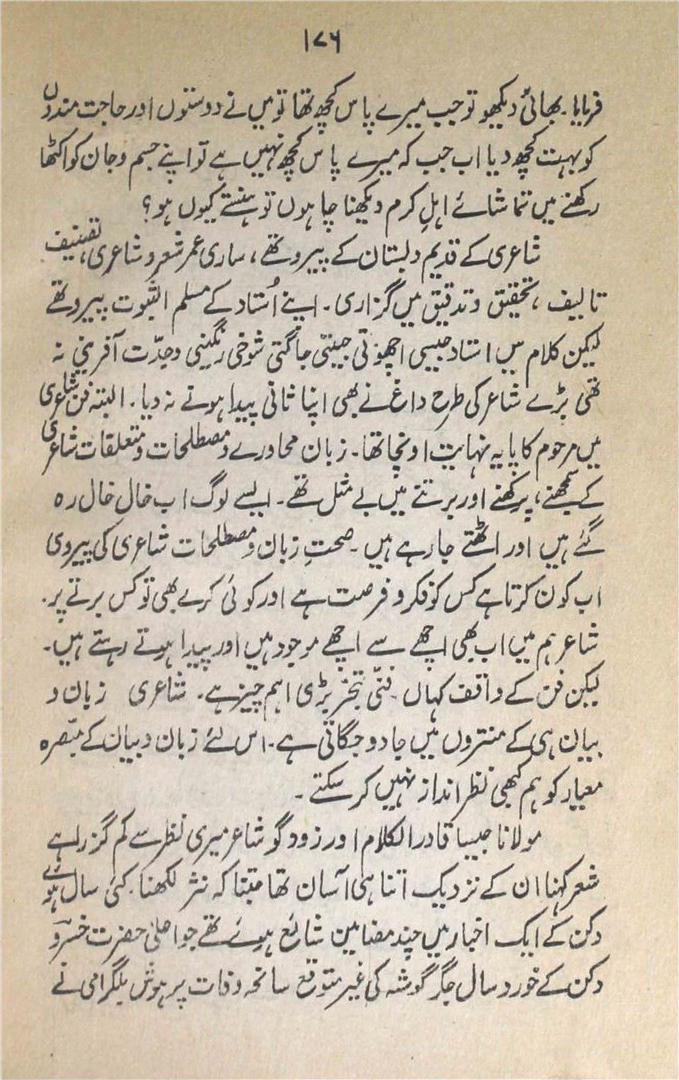 ۱۷۶
فرمایا۔ بھائی دیکھو تو جب میرے پاس کچھ تھا تو میں نے دوستوں اور حاجت مندوں
کو بہت کچھ دیا اب جب کہ میرے پاس کچھ نہیں ہے تو اپنے جسم وجان کو اکٹھا
رکھنے میں تماشائے اہلِ کرم دیکھنا چاہوں تو ہنستے کیوں ہو؟
شاعری کے قدیم دبستان کے پیرو تھے، ساری عمر شعر و شاعری، تصنیف
تالیف، تحقیق و تدقیق میں گزاری۔ اپنے اُستاد کے مسلم الثبوت پیرو تھے
لیکن کلام میں استاد جیسی اچھوتی جیتی جاگتی شوخی رنگینی وجدّت آفرینی نہ
تھی بڑے شاعر کی طرح داغ نے بھی اپنا ثانی پیدا ہونے نہ دیا۔ البتہ فن شاعری
میں مرحوم کا پایہ نہایت اونچا تھا۔ زبان محاورے و مصطلحات و متعلقات شاعری
کے سمجھنے، پرکھنے اور برتنے میں بے مثل تھے۔ ایسے لوگ اب خال خال رہ
گئے ہیں اور اٹھتے جارہے ہیں۔ صحتِ زبان و مصطلحات شاعری کی پیروی
اب کون کرتا ہے کس کو فکر و فرصت ہے اور کوئی کرے بھی تو کس برتے پر۔
شاعر ہم میں اب بھی اچھے سے اچھے موجود ہیں اور پیدا ہوتے رہتے ہیں۔
لیکن فن کے واقف کہاں۔ فنّی تبحّر بڑی اہم چیز ہے۔ شاعری زبان و
بیان ہی کے منتروں میں جادو جگاتی ہے۔ اس لئے زبان و بیان کے مبصرہ
معیار کو ہم کبھی نظر انداز نہیں کرسکتے۔
مولانا جیسا قادر الکلام اور زود گو شاعر میری نظر سے کم گزرا ہے
شعر کہنا ان کے نزدیک اتنا ہی آسان تھا جتنا کہ نثر لکھنا۔ کئی سال ہوئے
دکن کے ایک اخبار میں چند مضامین شائع ہوئے تھے جو اعلیٰ حضرت خسروِ
دکن کے خورد سال جگر گوشہ کی غیر متوقع سانحہ وفات پر ہوش بلگرامی نے